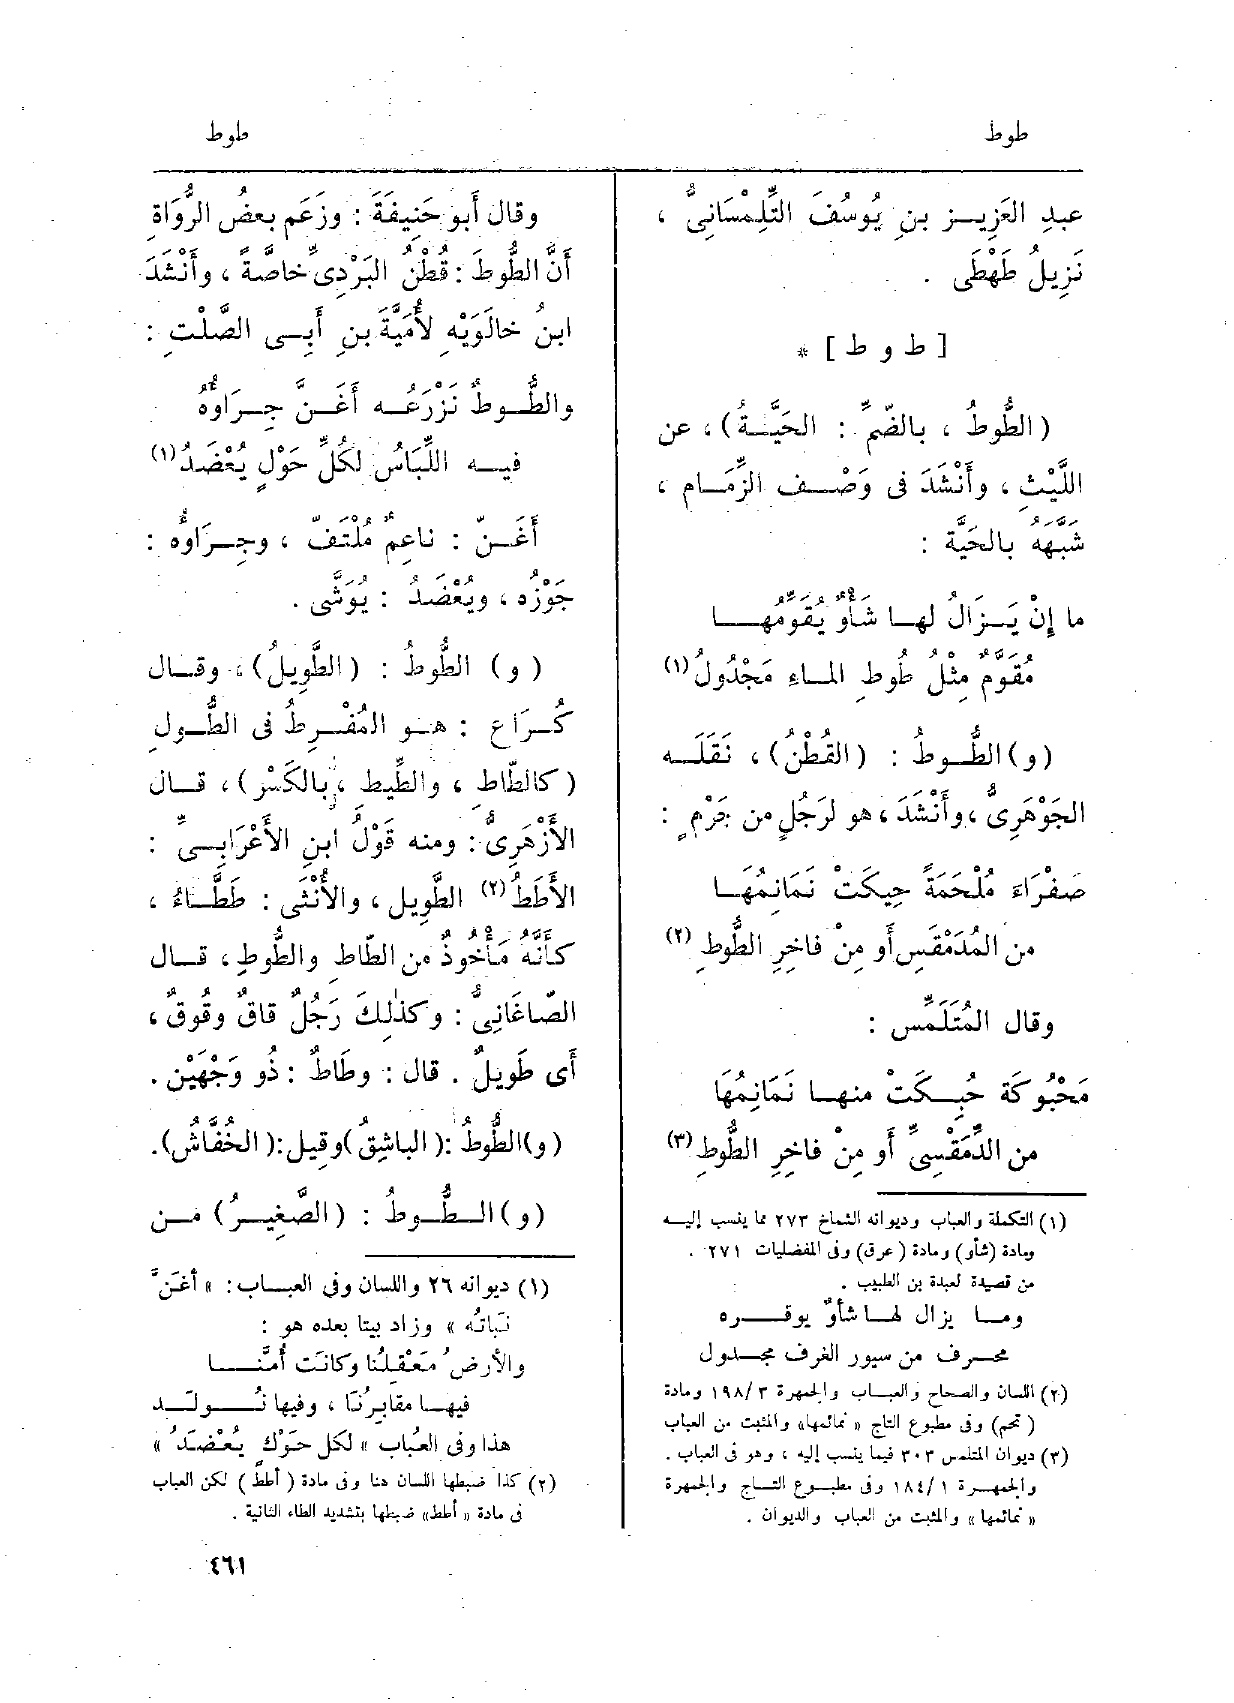 طوط
طوط
عبدِ العَزِيــز بنِ يُوسُفَ التِّلِمْسَانِىُّ ،
نَزِيلُ طَهْطَى .
[ ط و ط ] *
(الطُّوطُ ، بالضّمِّ : الحَيَّــةُ) ، عن
اللَّيْثِ ، وأَنْشَدَ فى وَصْـف الزِّمَـام ،
شَبَّهَهُ بالحَيَّة :
ما إِنْ يَــزَالُ لهـا شَأْوٌ يُقَوِّمُهَــا
مُقَوَّمٌ مِثْلُ طُوطِ المـاءِ مَجْدُولُ(١)
(و) الطُّـوطُ : (القُطْنُ) ، نَقَلَــه
الجَوْهَرِىُّ ، وأَنْشَدَ ، هو لرَجُلٍ من جَرْمٍ :
صَفْرَاءَ مُلْحَمَةً حِيكَتْ نَمَانِمُهَـا
من المُدَمْقَسِ أَو مِنْ فاخِرِ الطُّوطِ (٢)
وقال المُتَلَمِّس :
مَحْبُوكَة حُبِـكَتْ منهـا نَمَانِمُهَا
من الدِّمَقْسِىِّ أَو مِنْ فاخِرِ الطُّوطِ (٣)
(١) التكملة والعباب وديوانه الشماخ ٢٧٣ مما ينسب إليــه
ومادة (شأو) ومادة (عرق) وفى المفضليات ٢٧١ .
من قصيدة لعبدة بن الطبيب .
ومــا يزال لهـا شأوٌ يوقــره
محـرف من سيور الغرف مجـدول
(٢) اللسان والصحاح والعبـاب والجمهرة ١٩٨/٣ ومادة
(نمم) وفى مطبوع التاج « نمائمها» والمثبت من العباب
(٣) ديوان المتلمس ٣٠٣ فيما ينسب إليه ، وهو فى العباب .
والجمهـرة ١٨٤/١ وفى مطبـوع التـاج والجمهرة
« نمائمها » والمثبت من العباب والديوان .
وقال أَبو حَنِيفَةَ : وزَعَم بعضُ الرُّوَاةِ
أَنَّ الطُّوطَ : قُطْنُ البَرْدِىِّ خاصَّةً ، وأَنْشَدَ
ابنُ خالَوَيْهِ لأُمَيَّةَ بنِ أَبِـى الصَّلْتِ :
والطُّـوطُ نَزْرَعُـه أَغَـنَّ جِـرَاؤُه
فيـه اللِّبَاسُ لكلِّ حَوْلٍ يُعْضَدُ(١)
أَغَـنّ : ناعِمٌ مُلْتَفّ ، وجِـرَاؤُه :
جَوْزُه ، ويُعْضَدُ : يُوَشَّى .
(و) الطُّوطُ : (الطَّوِيلُ) ، وقـال
كُـرَاع : هـو المُفْـرِطُ فى الطُّـولِ
(كالطّاط ، والطِّيط ، بالكَسْرِ) ، قـال
الأَزْهَرِىُّ : ومنه قَوْلُ ابنِ الأَعْرَابِـىِّ :
الأَطَطُ (٢) الطَّوِيل ، والأُنْثَى : طَطَّـاءُ ،
كأَنَّهُ مَأْخُوذٌ من الطّاط والطُّوطِ ، قـال
الصّاغَانِىُّ : وكذٰلِكَ رَجُلٌ قاقٌ وقُوقٌ ،
أَى طَوِيلٌ . قال : وطَاطٌ : ذُو وَجْهَيْن .
(و)الطُّوطُ :( الباشِقُ)وقِيل:(الخُفَّاشُ).
(و)الـطُّـوطُ : (الصَّغِيـرُ) مـن
(١) ديوانه ٢٦ واللسان وفى العبـاب : « أغَنّ
نَباتُه » وزاد بيتا بعده هو :
والأرضُ مَعْقِلُنا وكانَت أُمَّنــا
فيهـا مقابرُنَا ، وفيها نُــولَـد
هذا وفى العُباب « لكل حَوْك يُعْضَدُ »
(٢) كذا ضبطها اللسان هنا وفى مادة ( أطط ) لكن العباب
فى مادة « أطط» ضبطها بتشديد الطاء الثانية .
٤٦١